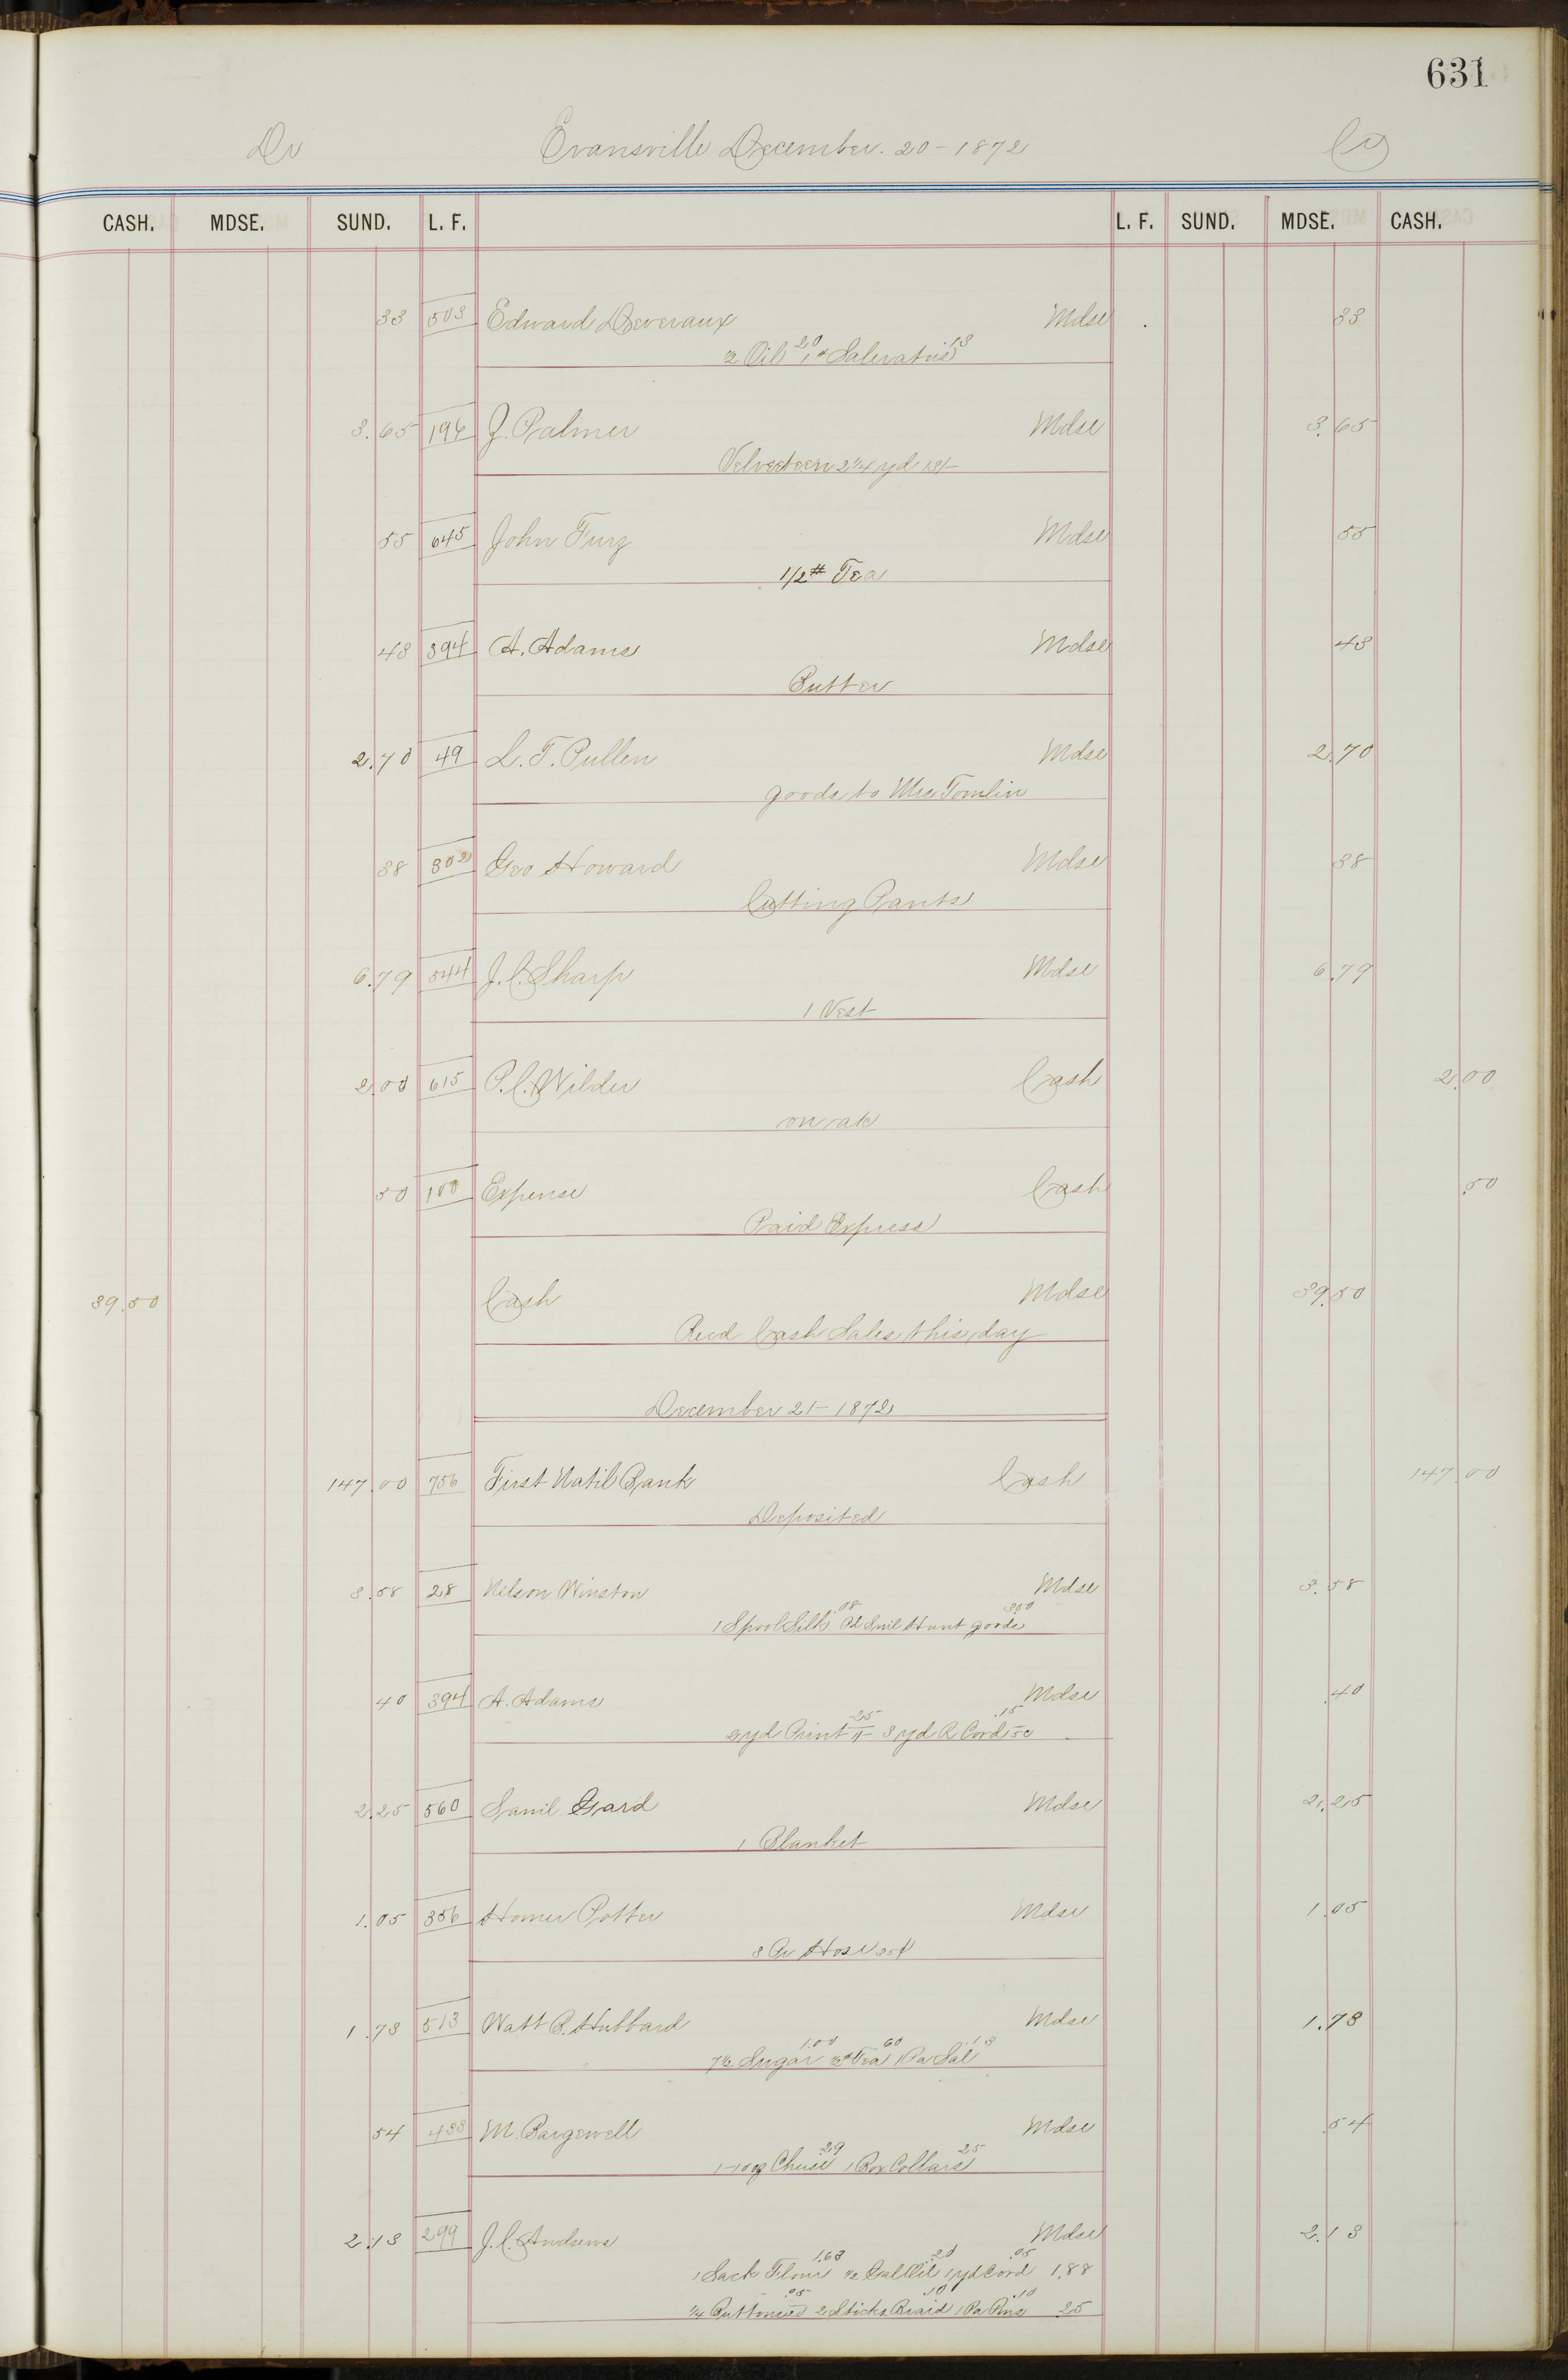 631
Dr Evansville December. 20 - 1872 Cr
CASH. MDSE. SUND. L. F. L. F. SUND. MDSE. CASH.
33 503 Edward Deveraux Mdse 33
1/2 Oil 20 1# Saleratus 13
3.65 196 J. Palmer Mdse 3.65
Velveteen 2 1/4 yd 13/-
55 645 John Furg Mdse 55
1/2# Tea
43 394 A. Adams Mdse 43
Butter
2.70 49 L. T. Pullen Mdse 2.70
goods to Mrs Tomlin
38 302 Geo Howard Mdse 38
Cutting Pants
6.79 544 J. C. Sharp Mdse 6.79
1 Vest
2.00 615 P. C. Wilder Cash 2.00
on a/c
50 100 Expense Cash .50
Paid Express
39.50 Cash Mdse 39.50
Recd Cash Sales this day
December 21 - 1872
147.00 756 First Natil Bank Cash 147.00
Deposited
3.58 28 Nelson Winston Mdse 3.58
1 Spool Silk 08 Hunt goods 3.50
40 394 A. Adams Mdse .40
2 yd Print 25 3 yd R Cord 5c .15
2.25 560 Saml. Gard Mdse 2.25
1 Blanket
1.05 356 Homer Potter Mdse 1.05
3 Pr Hose 35¢
1.73 513 Watt B. Hubbard Mdse 1.73
7 lb Sugar 1.00 1/2# Tea 60 1 Pa Sal 13
54 433 M. Bargewell Mdse .54
1-10oz Chese .29 1 Box Collars 25
2.13 299 J. C. Andrews Mdse 2.13
1 Sack Flour 1.63 1/2 Gal Oil .20 1 yd Cord .05 1.88
1/4 Buttons .05 2 Sticks Braid .10 1 Pa Pins .10 25